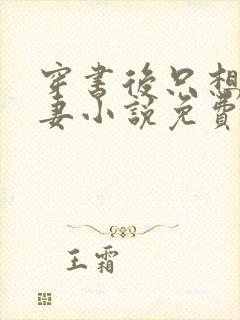 穿书後只想
妻小說免費
王霜